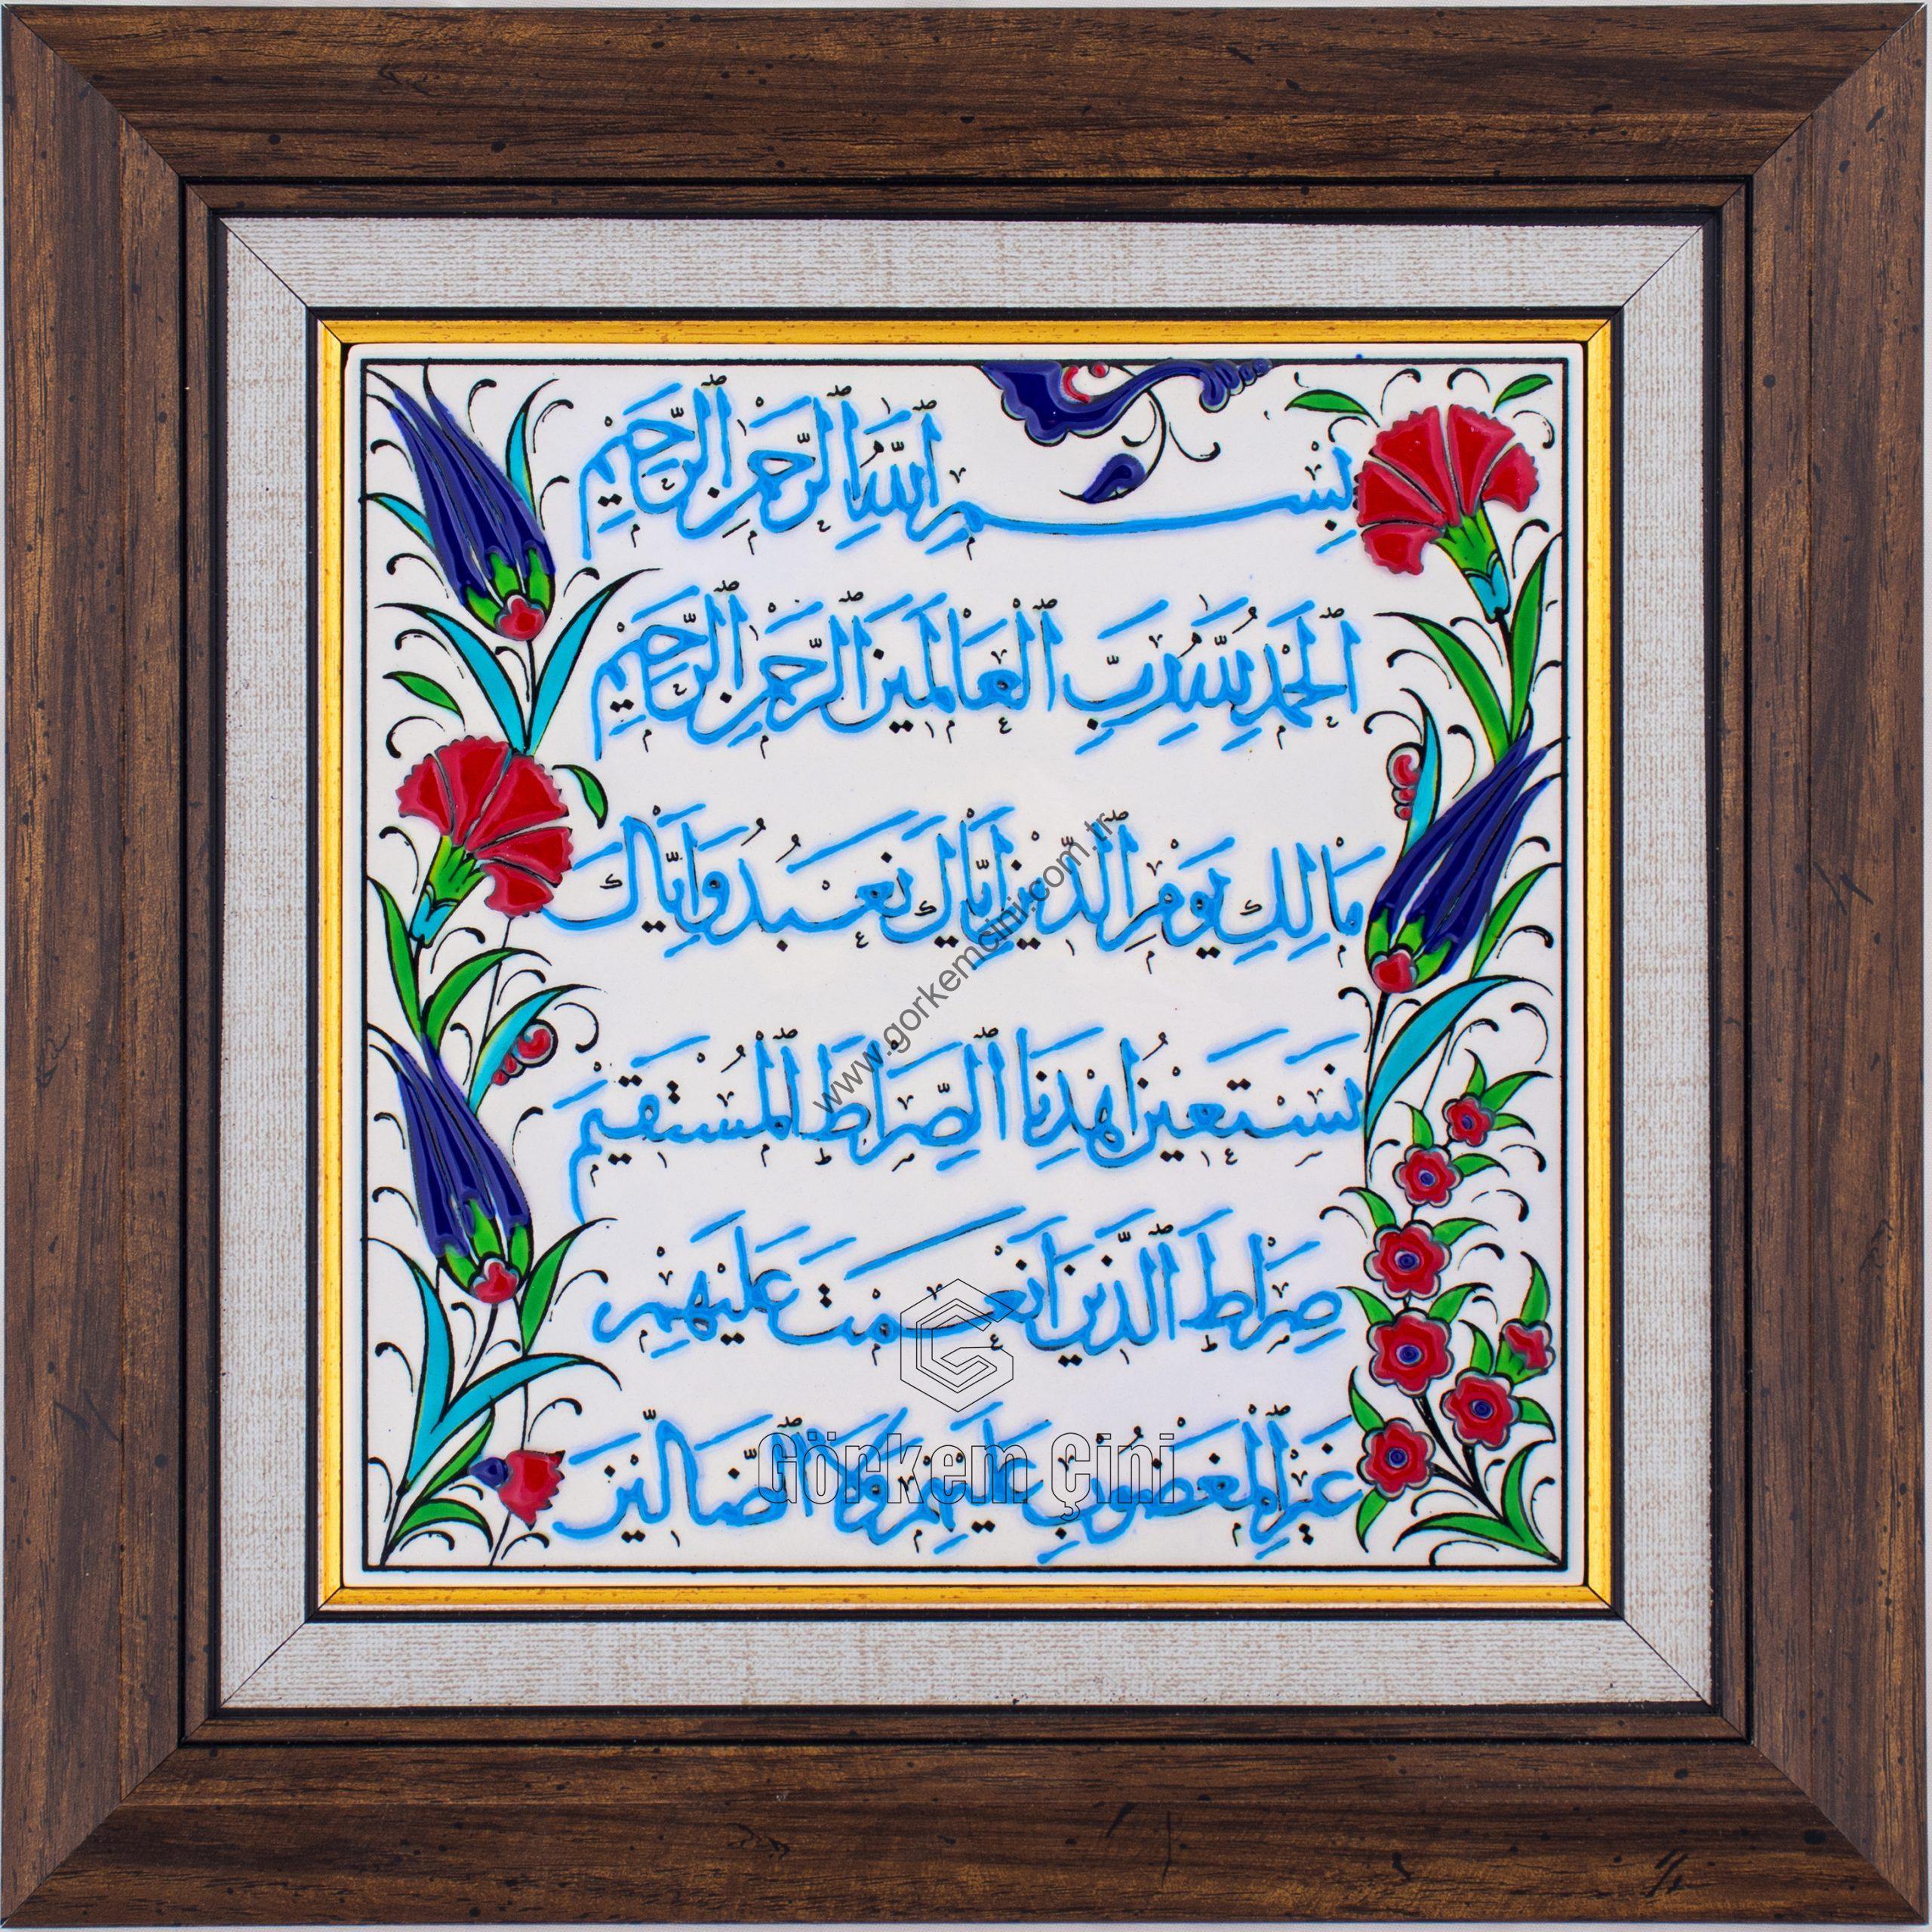 بِسْمِ اللّٰهِ الرَّحْمٰنِ الرَّحِيمِ
اَلْحَمْدُ لِلّٰهِ رَبِّ الْعَالَمِينَ الرَّحْمٰنِ الرَّحِيمِ
مَالِكِ يَوْمِ الدِّينِ اِيَّاكَ نَعْبُدُ وَاِيَّاكَ
نَسْتَعِينُ اِهْدِنَا الصِّرَاطَ الْمُسْتَقِيمَ
صِرَاطَ الَّذِينَ اَنْعَمْتَ عَلَيْهِمْ
غَيْرِ الْمَغْضُوبِ عَلَيْهِمْ وَلَا الضَّالِّينَ
www.gorkemcini.com.tr
Görkem Çini